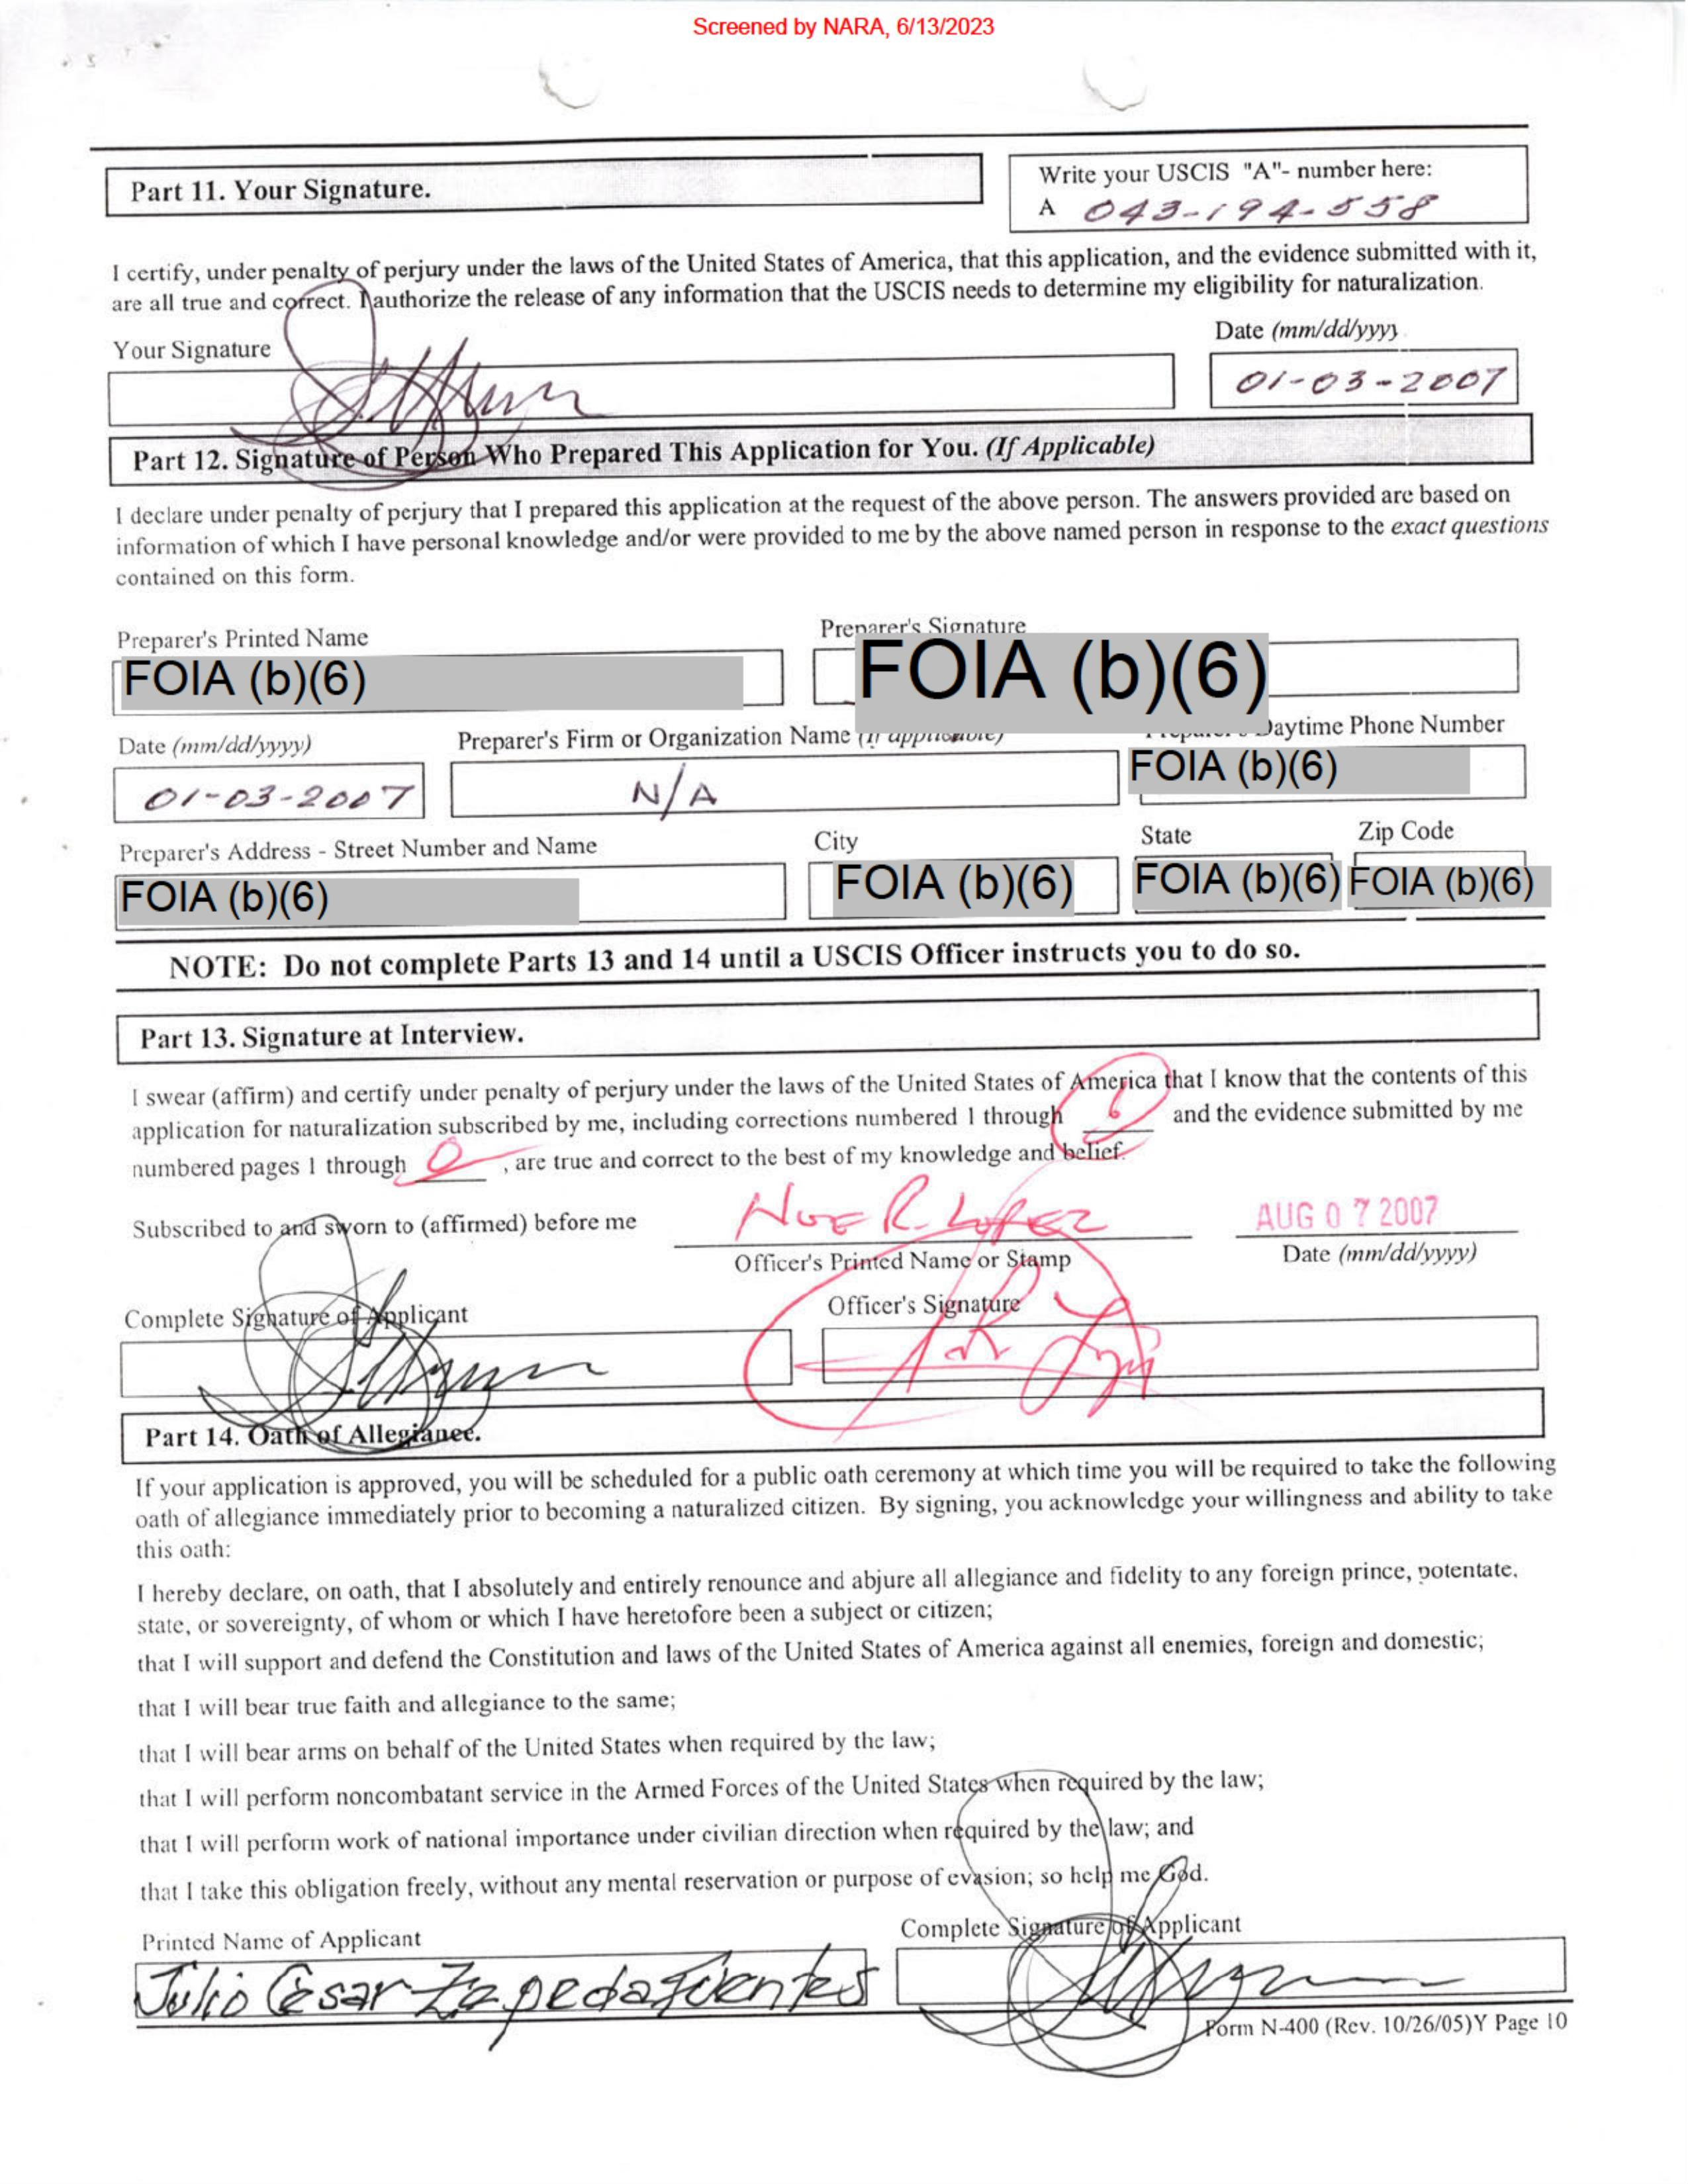 Screened by NARA, 6/13/2023
Part 11. Your Signature.
Write your USCIS "A"- number here:
A 043-194-558
I certify, under penalty of perjury under the laws of the United States of America, that this application, and the evidence submitted with it,
are all true and correct. I authorize the release of any information that the USCIS needs to determine my eligibility for naturalization.
Your Signature
Date (mm/dd/yyyy)
01-03-2007
Part 12. Signature of Person Who Prepared This Application for You. (If Applicable)
I declare under penalty of perjury that I prepared this application at the request of the above person. The answers provided are based on
information of which I have personal knowledge and/or were provided to me by the above named person in response to the exact questions
contained on this form.
Preparer's Printed Name
Preparer's Signature
FOIA (b)(6)
FOIA (b)(6)
Date (mm/dd/yyyy)
Preparer's Firm or Organization Name (If applicable)
Preparer's Daytime Phone Number
01-03-2007
N/A
FOIA (b)(6)
Preparer's Address - Street Number and Name
City
State
Zip Code
FOIA (b)(6)
FOIA (b)(6)
FOIA (b)(6)
FOIA (b)(6)
NOTE: Do not complete Parts 13 and 14 until a USCIS Officer instructs you to do so.
Part 13. Signature at Interview.
I swear (affirm) and certify under penalty of perjury under the laws of the United States of America that I know that the contents of this
application for naturalization subscribed by me, including corrections numbered 1 through 6 and the evidence submitted by me
numbered pages 1 through 0, are true and correct to the best of my knowledge and belief.
Subscribed to and sworn to (affirmed) before me
NOE R. LOPEZ
AUG 07 2007
Officer's Printed Name or Stamp
Date (mm/dd/yyyy)
Complete Signature of Applicant
Officer's Signature
Part 14. Oath of Allegiance.
If your application is approved, you will be scheduled for a public oath ceremony at which time you will be required to take the following
oath of allegiance immediately prior to becoming a naturalized citizen. By signing, you acknowledge your willingness and ability to take
this oath:
I hereby declare, on oath, that I absolutely and entirely renounce and abjure all allegiance and fidelity to any foreign prince, potentate,
state, or sovereignty, of whom or which I have heretofore been a subject or citizen;
that I will support and defend the Constitution and laws of the United States of America against all enemies, foreign and domestic;
that I will bear true faith and allegiance to the same;
that I will bear arms on behalf of the United States when required by the law;
that I will perform noncombatant service in the Armed Forces of the United States when required by the law;
that I will perform work of national importance under civilian direction when required by the law; and
that I take this obligation freely, without any mental reservation or purpose of evasion; so help me God.
Printed Name of Applicant
Complete Signature of Applicant
Julio Cesar Zepeda Fuentes
Form N-400 (Rev. 10/26/05)Y Page 10